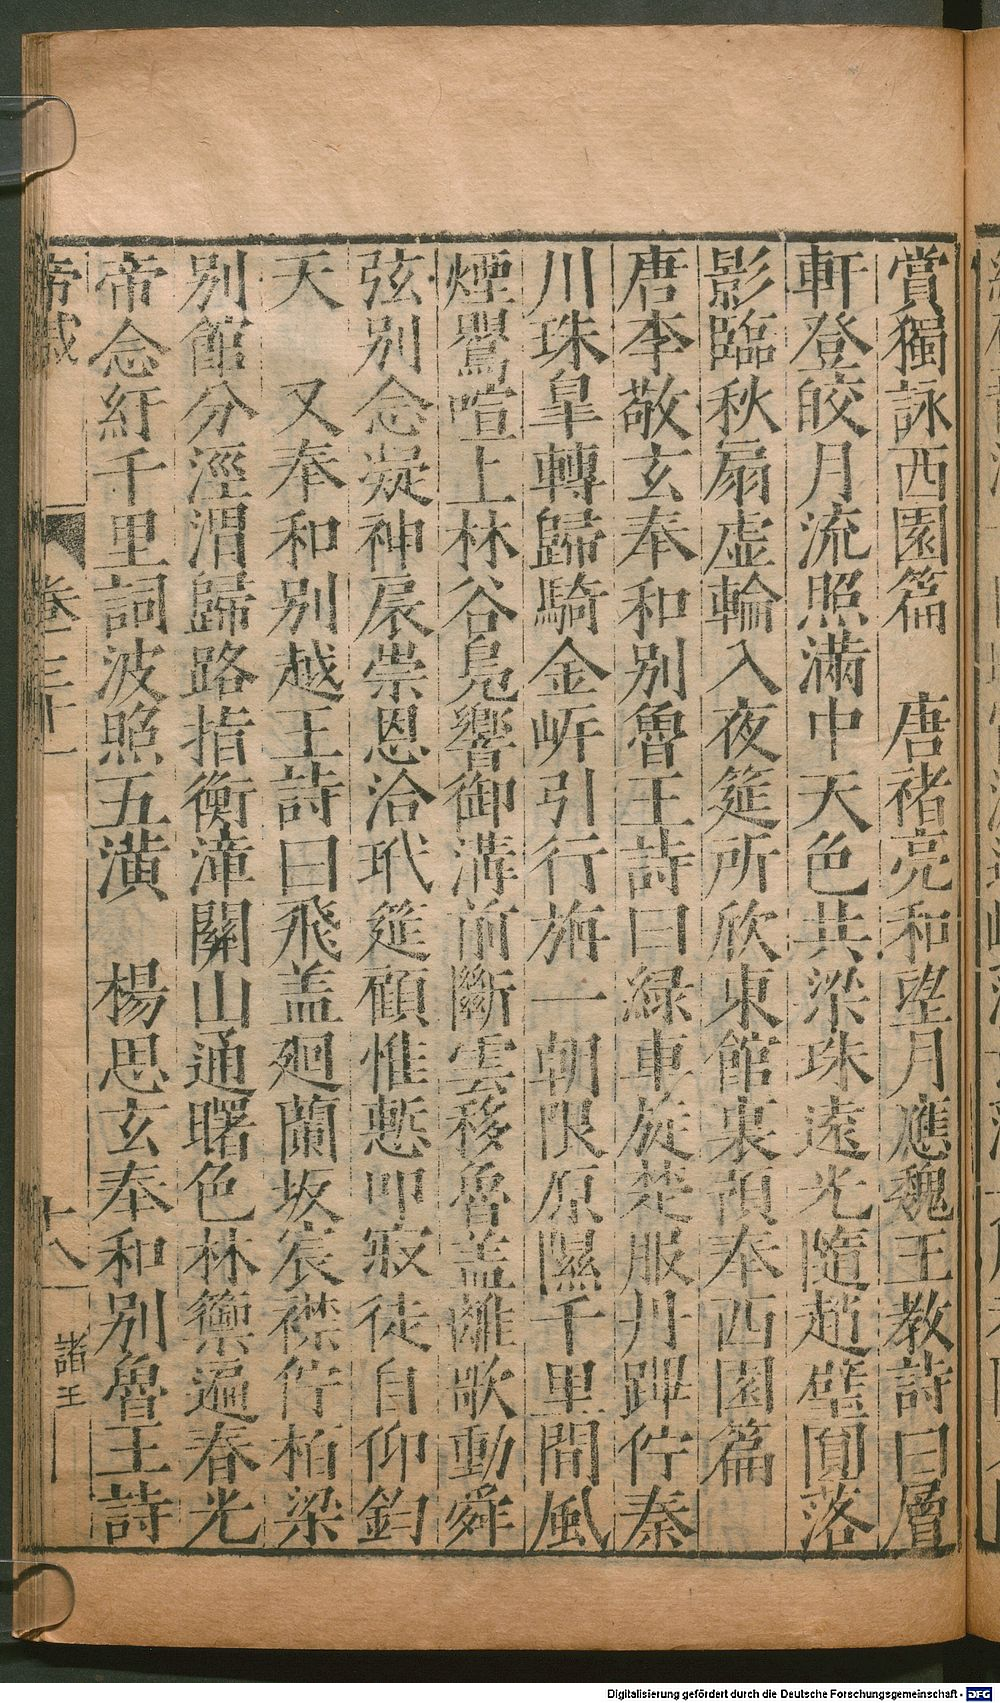 賞獨詠西園篇　唐褚亮和望月應魏王教詩曰層
軒登皎月流照滿中天色共梁珠遠光隨趙璧圓落
影臨秋扇虛輪入夜筵所欣東館裏預奉西園篇
唐李敬玄奉和別魯王詩曰綠車旋楚服丹蹕佇秦
川珠皐轉歸騎金岍引行旃一朝限原隰千里間風
煙鸎喧上林谷鳧響御溝前斷雲移魯蓋離歌動舜
弦別念凝神扆崇恩洽玳筵顧惟慙叩寂徒自仰鈞
天　又奉和別越王詩曰飛蓋廻蘭坂宸襟佇柏梁
別館分涇渭歸路指衡漳關山通曙色林籞遍春光
帝念紆千里詞波照五潢　楊思玄奉和別魯王詩
帝戚　卷三十一　十八　諸王
Digitalisierung gefördert durch die Deutsche Forschungsgemeinschaft - DFG